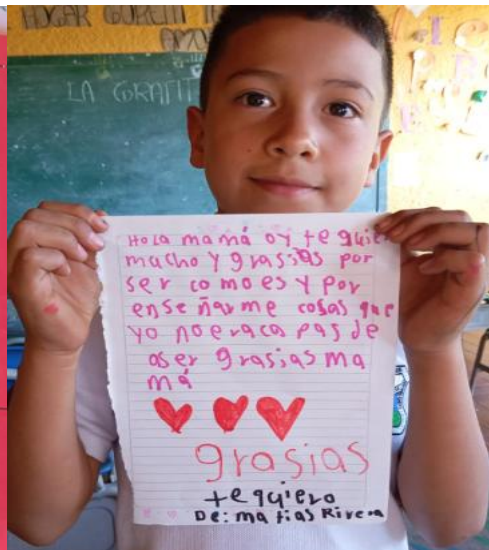 LA GRATIT
Hola mamá oy te quier
mucho y grasias por
ser como es y por
enseñarme cosas que
yo no era ca pas de
aser grasias ma
má
grasias
te quiero
De: matias Rivera